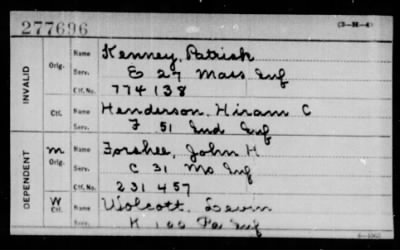 277696
(3-H-4)
INVALID
Orig.
Name
Kenney, Patrick
Serv.
E 27 Mass Inf
Ctf. No.
774138
Ctf.
Name
Henderson, Hiram C
Serv.
F 51 Ind Inf
DEPENDENT
m
Orig.
Name
Forshee, John H
Serv.
C 31 Mo Inf
Ctf. No.
231457
W
Ctf.
Name
Wolcott,
Serv.
K 100 Pa Inf